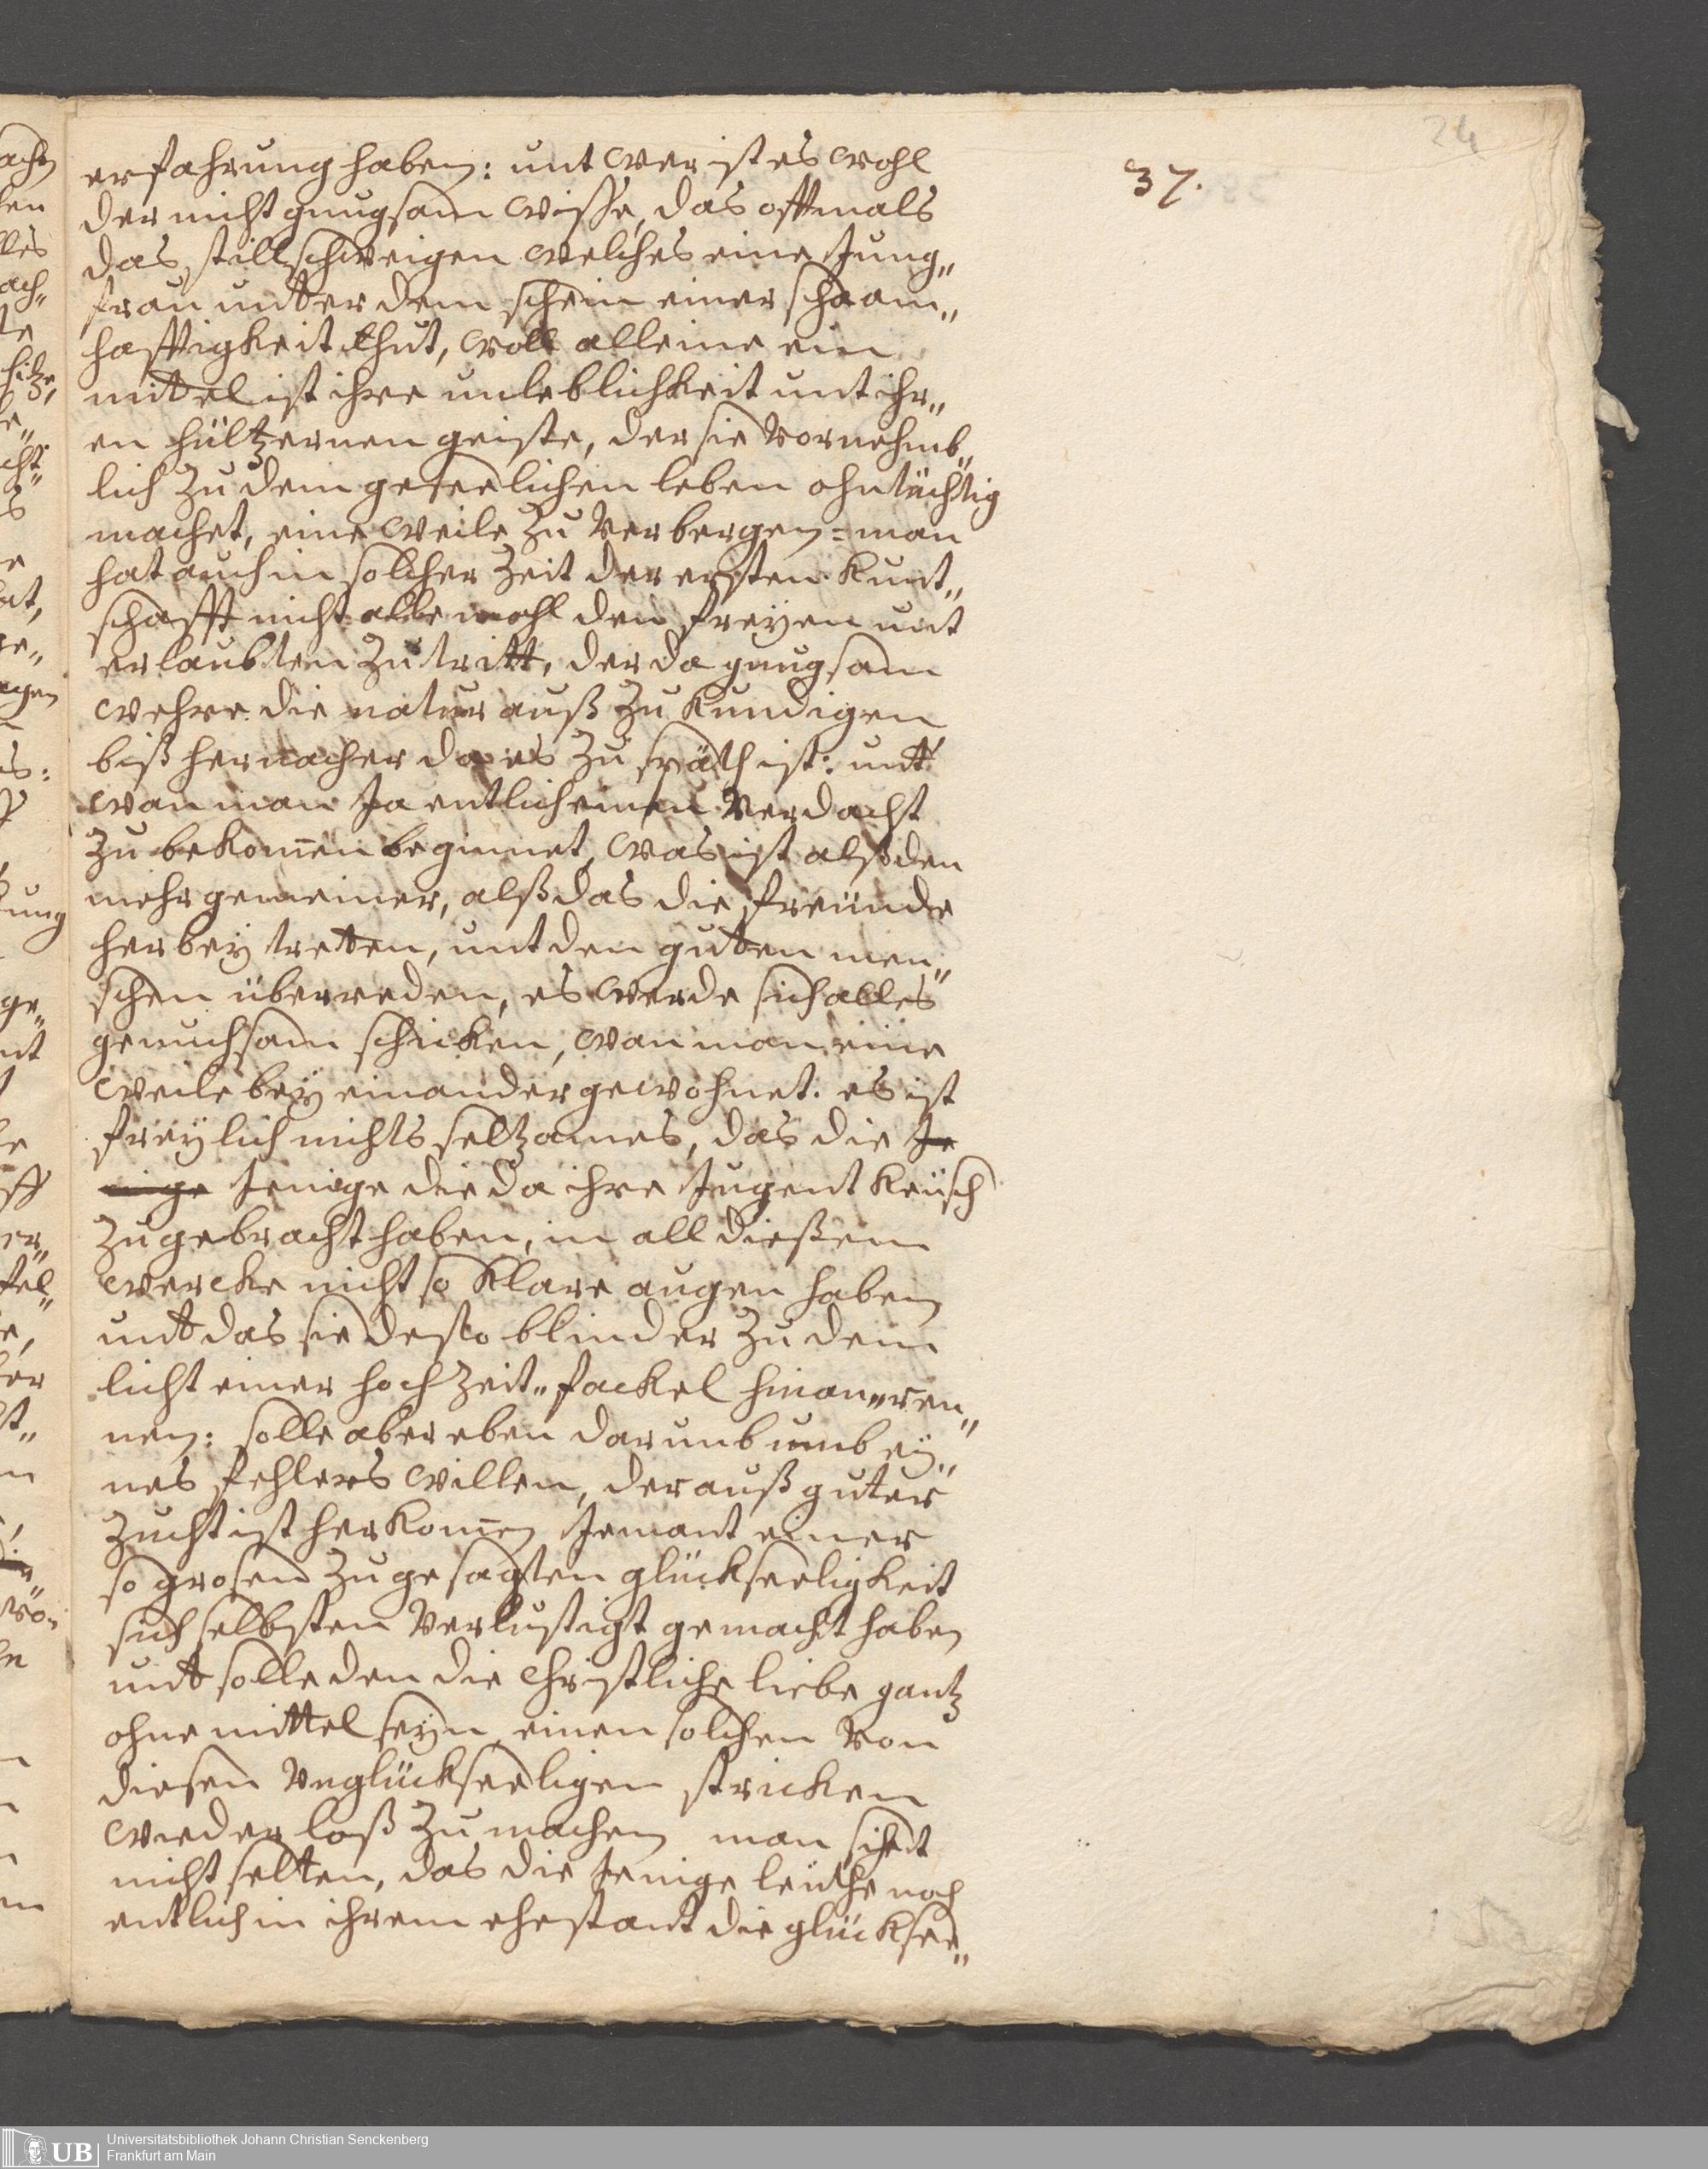 24
37.
erfahrung haben: unt wer ist es wohl
der nicht gnugsam wisse, das offtmals
das stillschweigen welches eine Jung„
frau untter dem schein einer schaam„
hafftigkeit thut, woll alleine ein
mittel ist ihre unleblichkeit unt ihr„
en hültzernen geiste, der sie vornehmb„
lich zu dem geseelichen leben ohntüchtig
machet, eine weile zu verbergen: man
hat auch in solcher zeit der ersten kunt„
schafft nicht alle mohl den freyen unt
erlaubten zutritt, der da gnugsam
wehre die natur auß zu kundigen
biß hernacher da es zu späth ist: untt
wan man Ja entlich einen verdacht
zu bekom̄en beginnet, was ist alßden
mehr gemeiner, alß das die freunde
herbey tretten, unt den gutten men„
schen überreden, es werde sich alles
genuchsam schicken, wan man eine
weile bey einander gewohnet. es ist
freylich nichts seltzames, das die Je
nige Jenige die da ihre Jugent keüsch
zugebracht haben, in all dießem
wercke nicht so klare augen haben
untt das sie desto blinder zu dem
licht einer hochzeit„fackel hinan„ren„
nen: solle aber eben darumb umb ey„
nes fehlers willen, der auß guter
zucht ist herkom̄en Jemant einer
so grosen zugesagten glückseeligkeit
sich selbsten verlustigt gemacht haben
untt solle den die christliche liebe gantz
ohne mittel seyn, einen solchen von
diesen unglückseeligen stricken
wieder loß zu machen man sihet
nicht selten, das die Jenige leuthe noch
entlich in ihrem ehestant die glücksee„
Universitätsbibliothek Johann Christian Senckenberg
Frankfurt am Main
UB